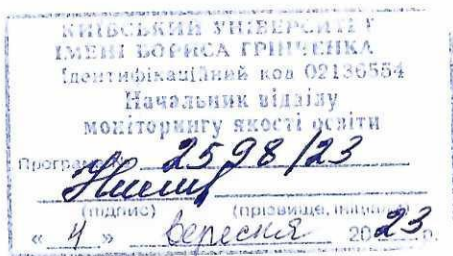 КИЇВСЬКИЙ УНІВЕРСИТЕТ
ІМЕНІ БОРИСА ГРІНЧЕНКА
Ідентифікаційний код 02136554
Начальник відділу
моніторингу якості освіти
Програма № 2598/23
(підпис) (прізвище, ініціали)
« 4 » вересня 2023 р.